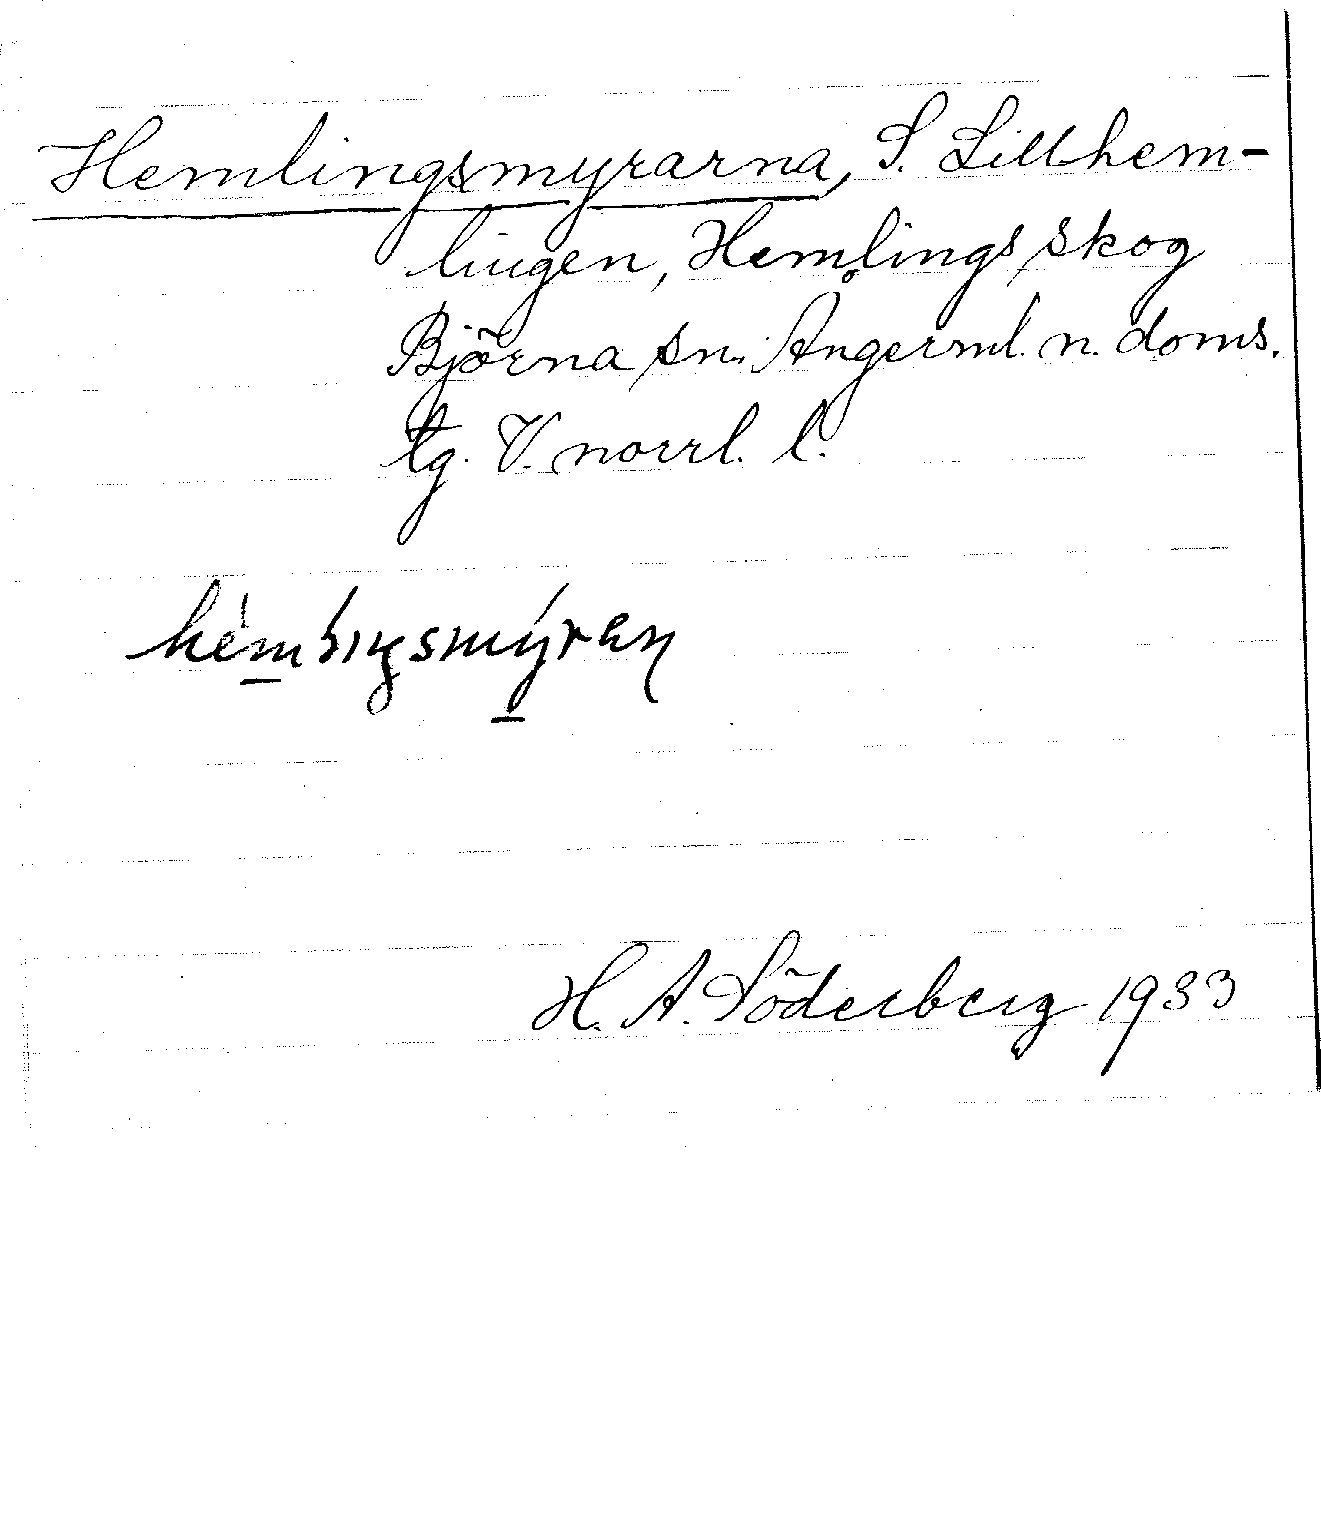 Hemlingsmyrarna, S. Lillhem-
lingen, Hemlings skog
Björna sn. Ångerml. n. doms.
tg. V. norrl. l.
H. A. Söderberg 1933